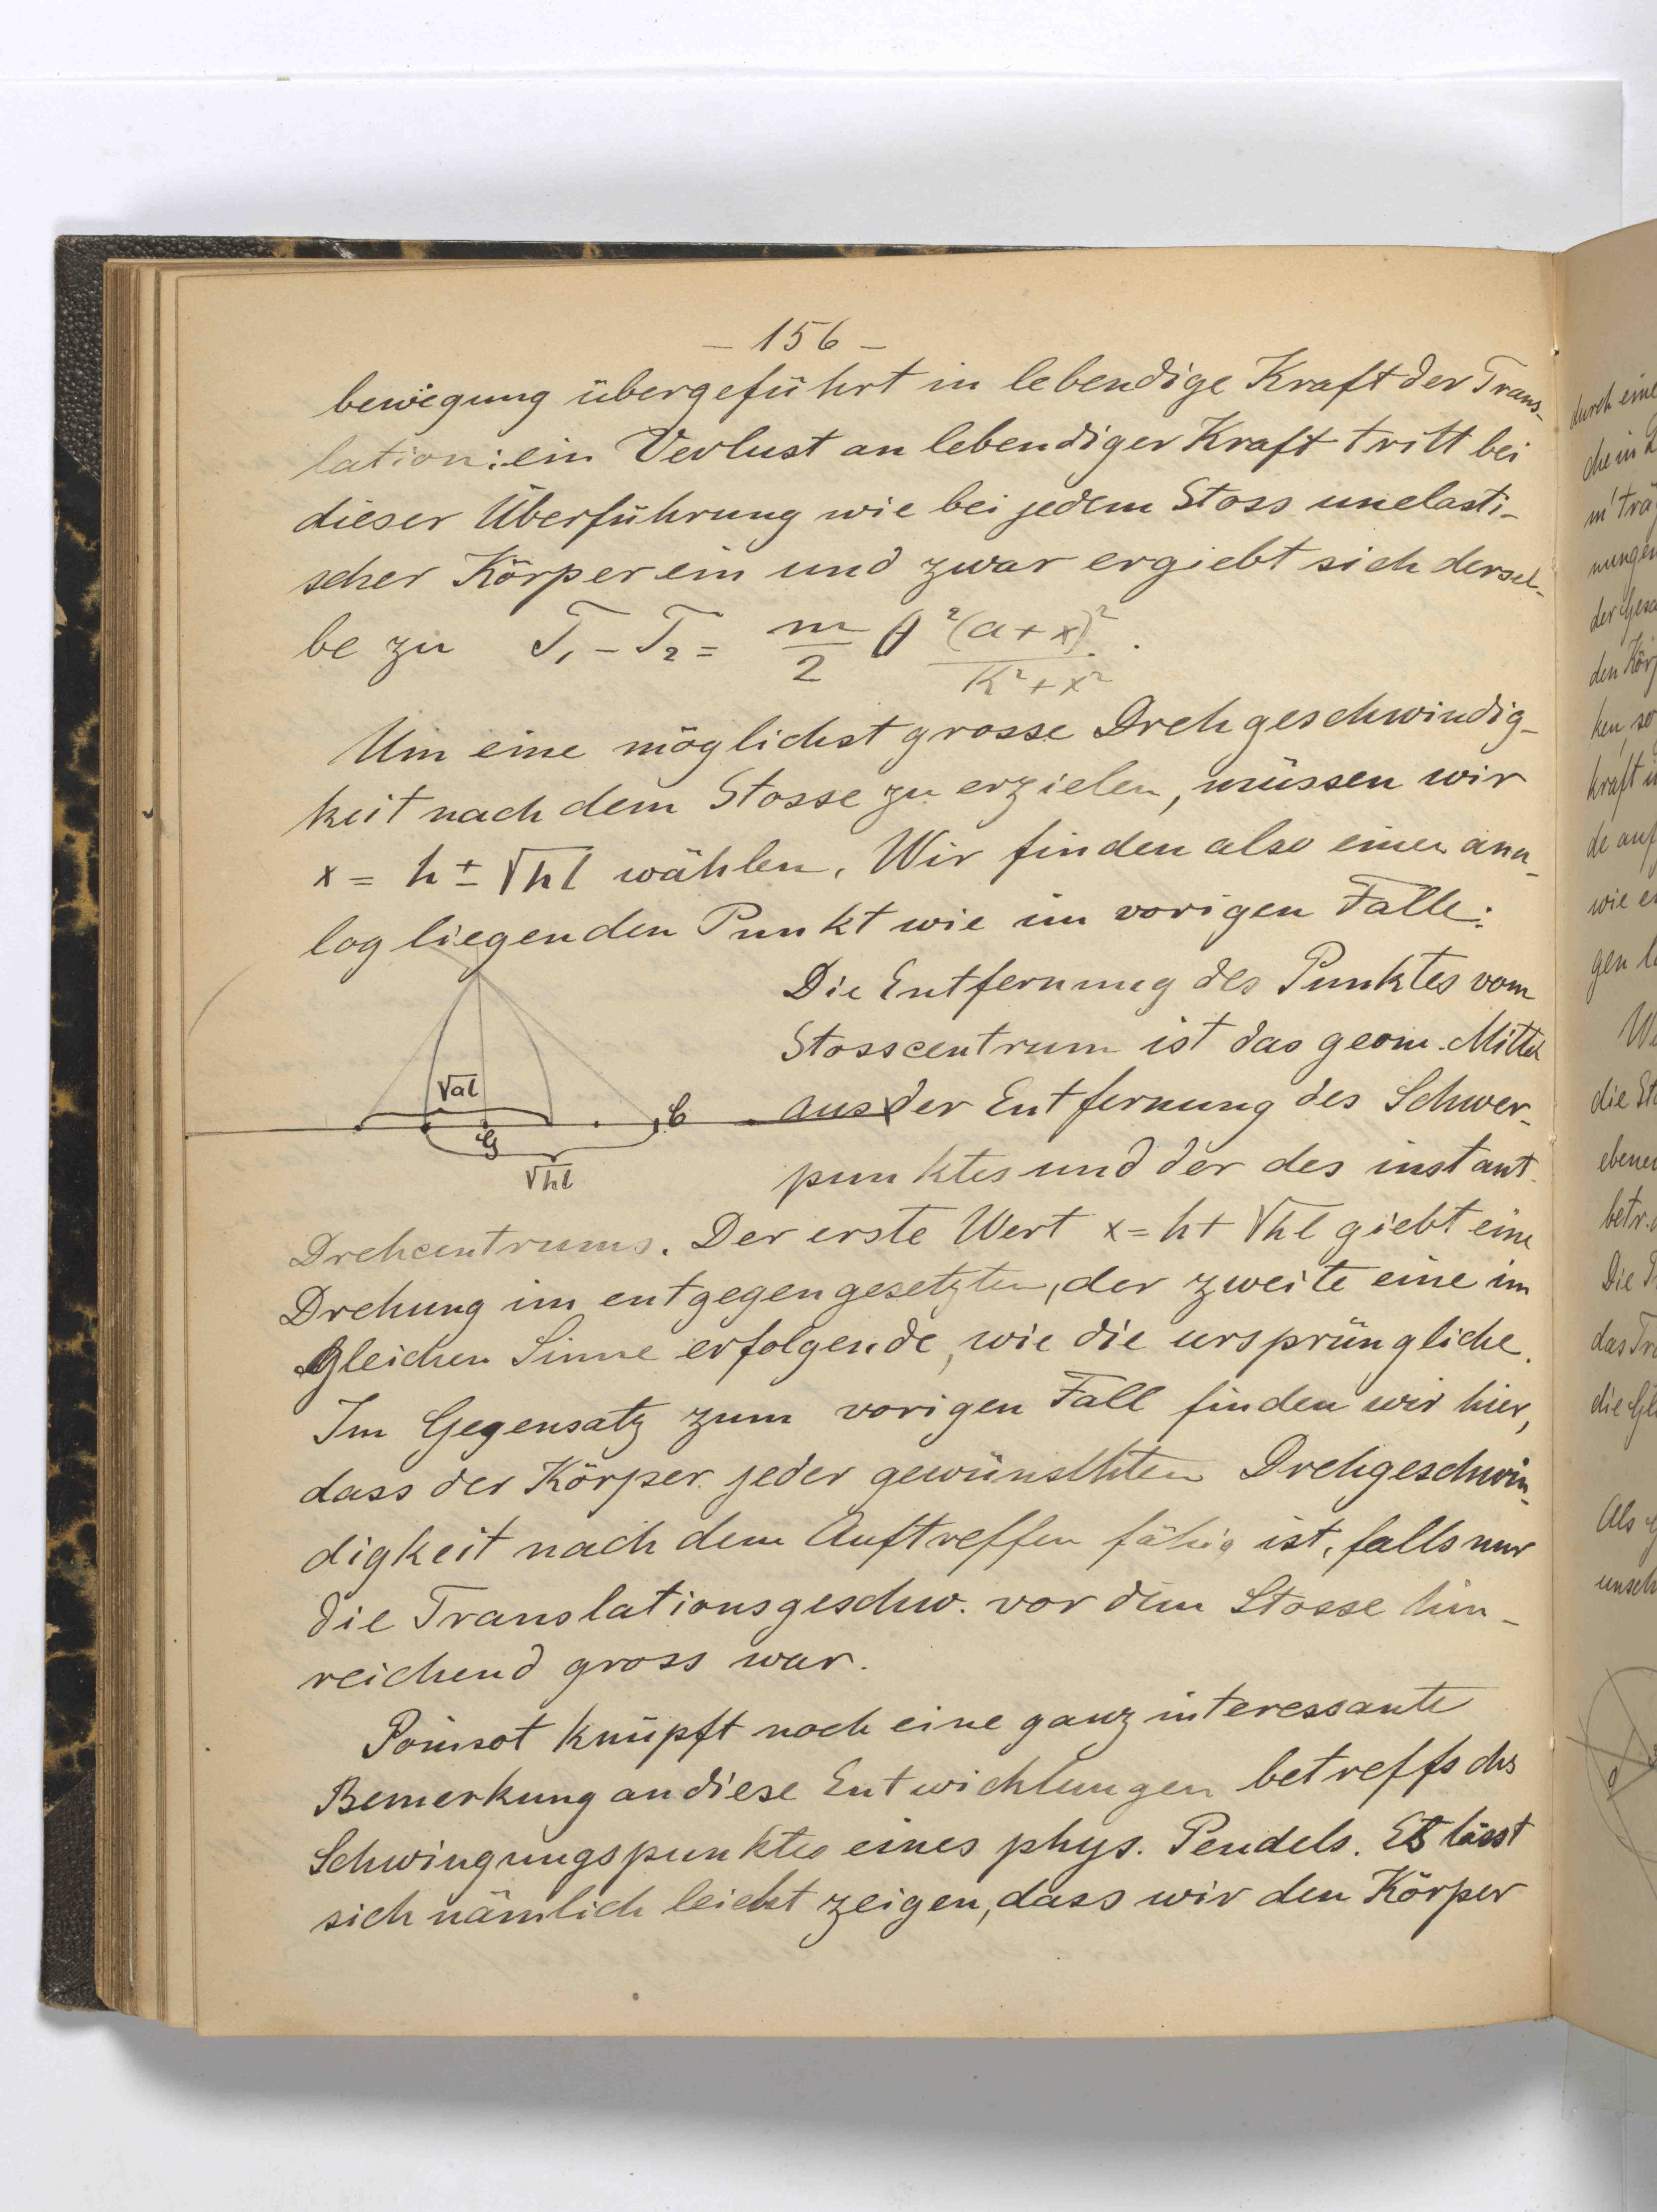 – 156 –
bewegung übergeführt in lebendige Kraft der Trans-
lation: ein Verlust an lebendiger Kraft tritt bei
dieser Überführung wie bei jedem Stoss unelasti-
scher Körper ein und zwar ergiebt sich dersel-
be zu T₁ – T₂ = m/2 θ² (a + x)²/K² + x² .
Um eine möglichst grosse Drehgeschwindig-
keit nach dem Stosse zu erzielen, müssen wir
x = h ± √hl wählen. Wir finden also einen ana-
log liegenden Punkt wie im vorigen Falle:
Die Entfernung des Punktes vom
Stosscentrum ist das geom. Mittel
aus der Entfernung des Schwer-
punktes und der des instant.
√al
G
C
√hl
Drehcentrums. Der erste Wert x = h + √hl giebt eine
Drehung im entgegengesetzten, der zweite eine im
gleichen Sinne erfolgende, wie die ursprüngliche.
Im Gegensatz zum vorigen Fall finden wir hier,
dass der Körper jeder gewünschten Drehgeschwin-
digkeit nach dem Auftreffen fähig ist, falls nur
die Translationsgeschw. vor dem Stosse hin-
reichend gross war.
Poinsot knüpft noch eine ganz interessante
Bemerkung an diese Entwicklungen betreffs des
Schwingungspunktes eines phys. Pendels. Es lässt
sich nämlich leicht zeigen, dass wir den Körper
durch eine
wie er
die Gl
Als